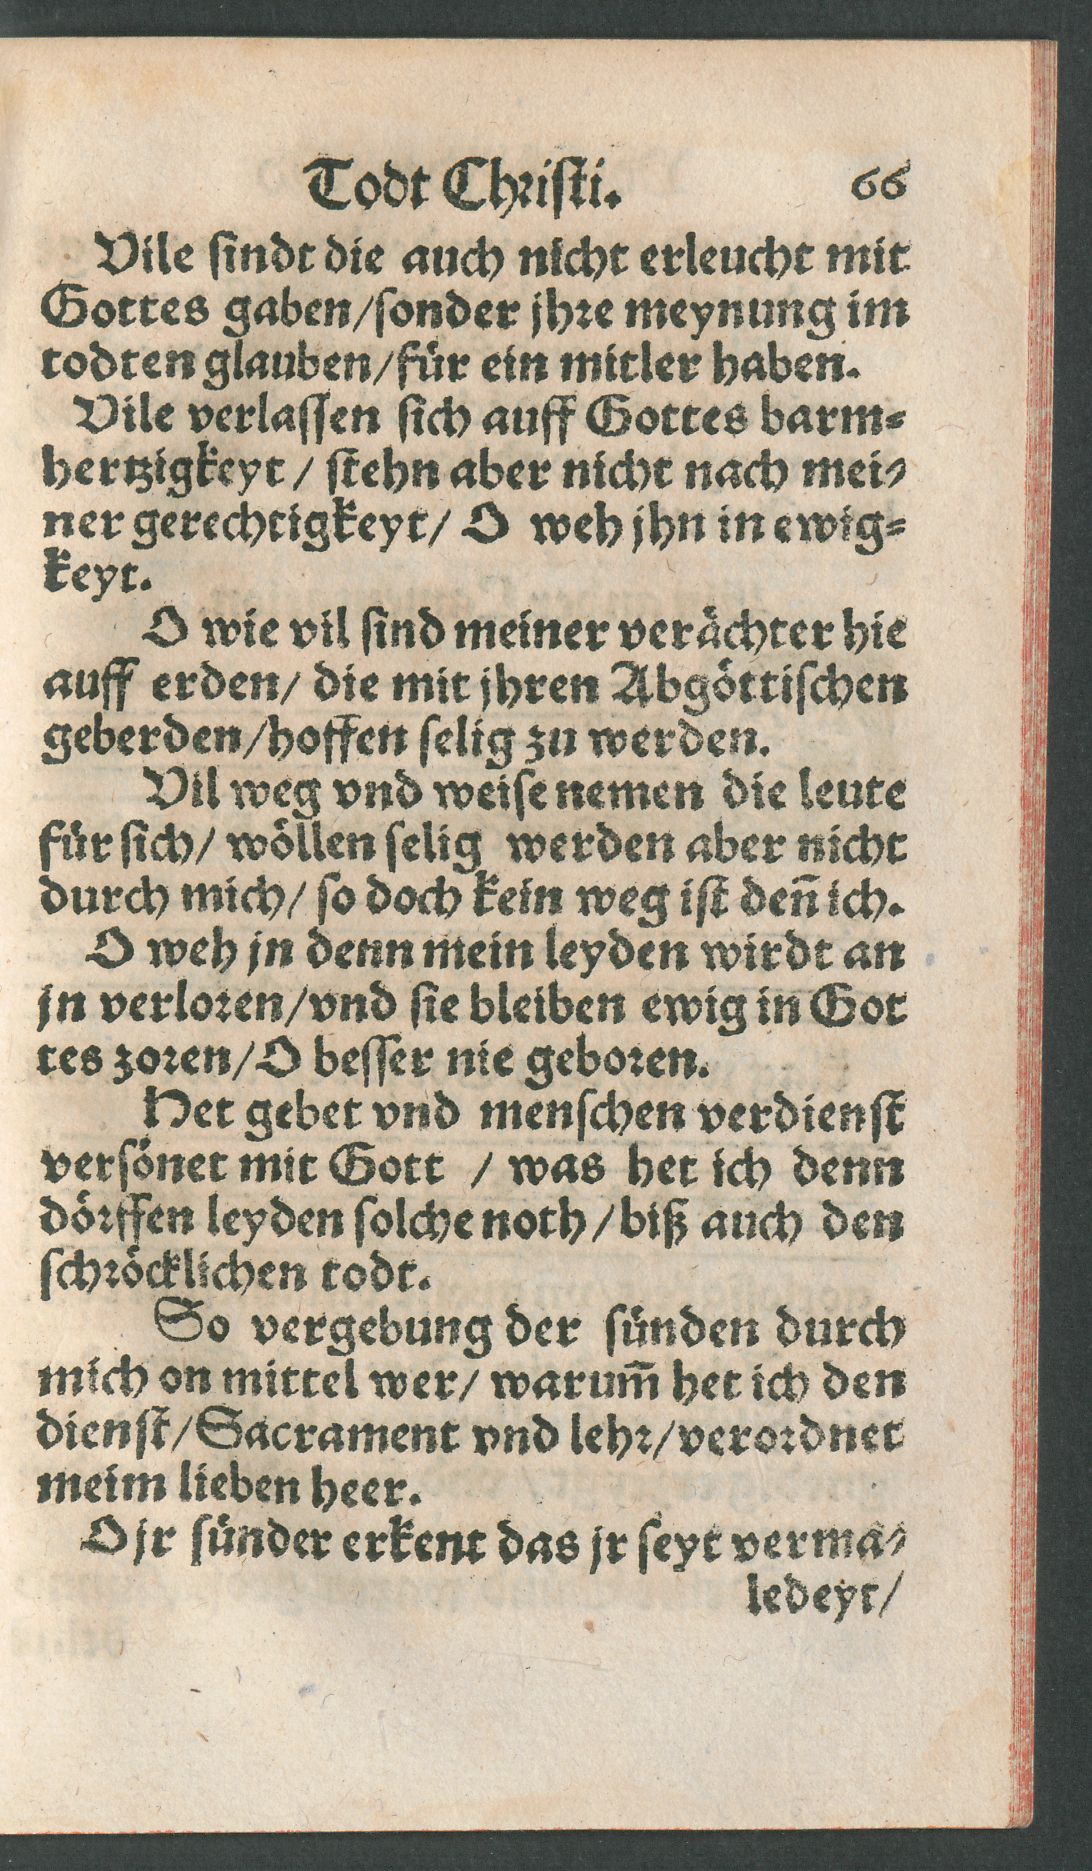 Todt Christi. 66
Vile sindt die auch nicht erleucht mit
Gottes gaben/sonder jhre meynung im
todten glauben/für ein mitler haben.
Vile verlassen sich auff Gottes barm-
hertzigkeyt / stehn aber nicht nach mei-
ner gerechtigkeyt/ O weh jhn in ewig-
keyt.
O wie vil sind meiner verächter hie
auff erden/ die mit jhren Abgöttischen
geberden/hoffen selig zu werden.
Vil weg vnd weise nemen die leute
für sich/ wöllen selig werden aber nicht
durch mich/ so doch kein weg ist deñ ich.
O weh jn denn mein leyden wirdt an
jn verloren/vnd sie bleiben ewig in Got
tes zoren/O besser nie geboren.
Het gebet vnd menschen verdienst
versönet mit Gott / was het ich denn
dörffen leyden solche noth/biß auch den
schröcklichen todt.
So vergebung der sünden durch
mich on mittel wer/ warum̃ het ich den
dienst/Sacrament vnd lehr/verordnet
meim lieben heer.
O jr sünder erkent das jr seyt verma-
ledeyt/